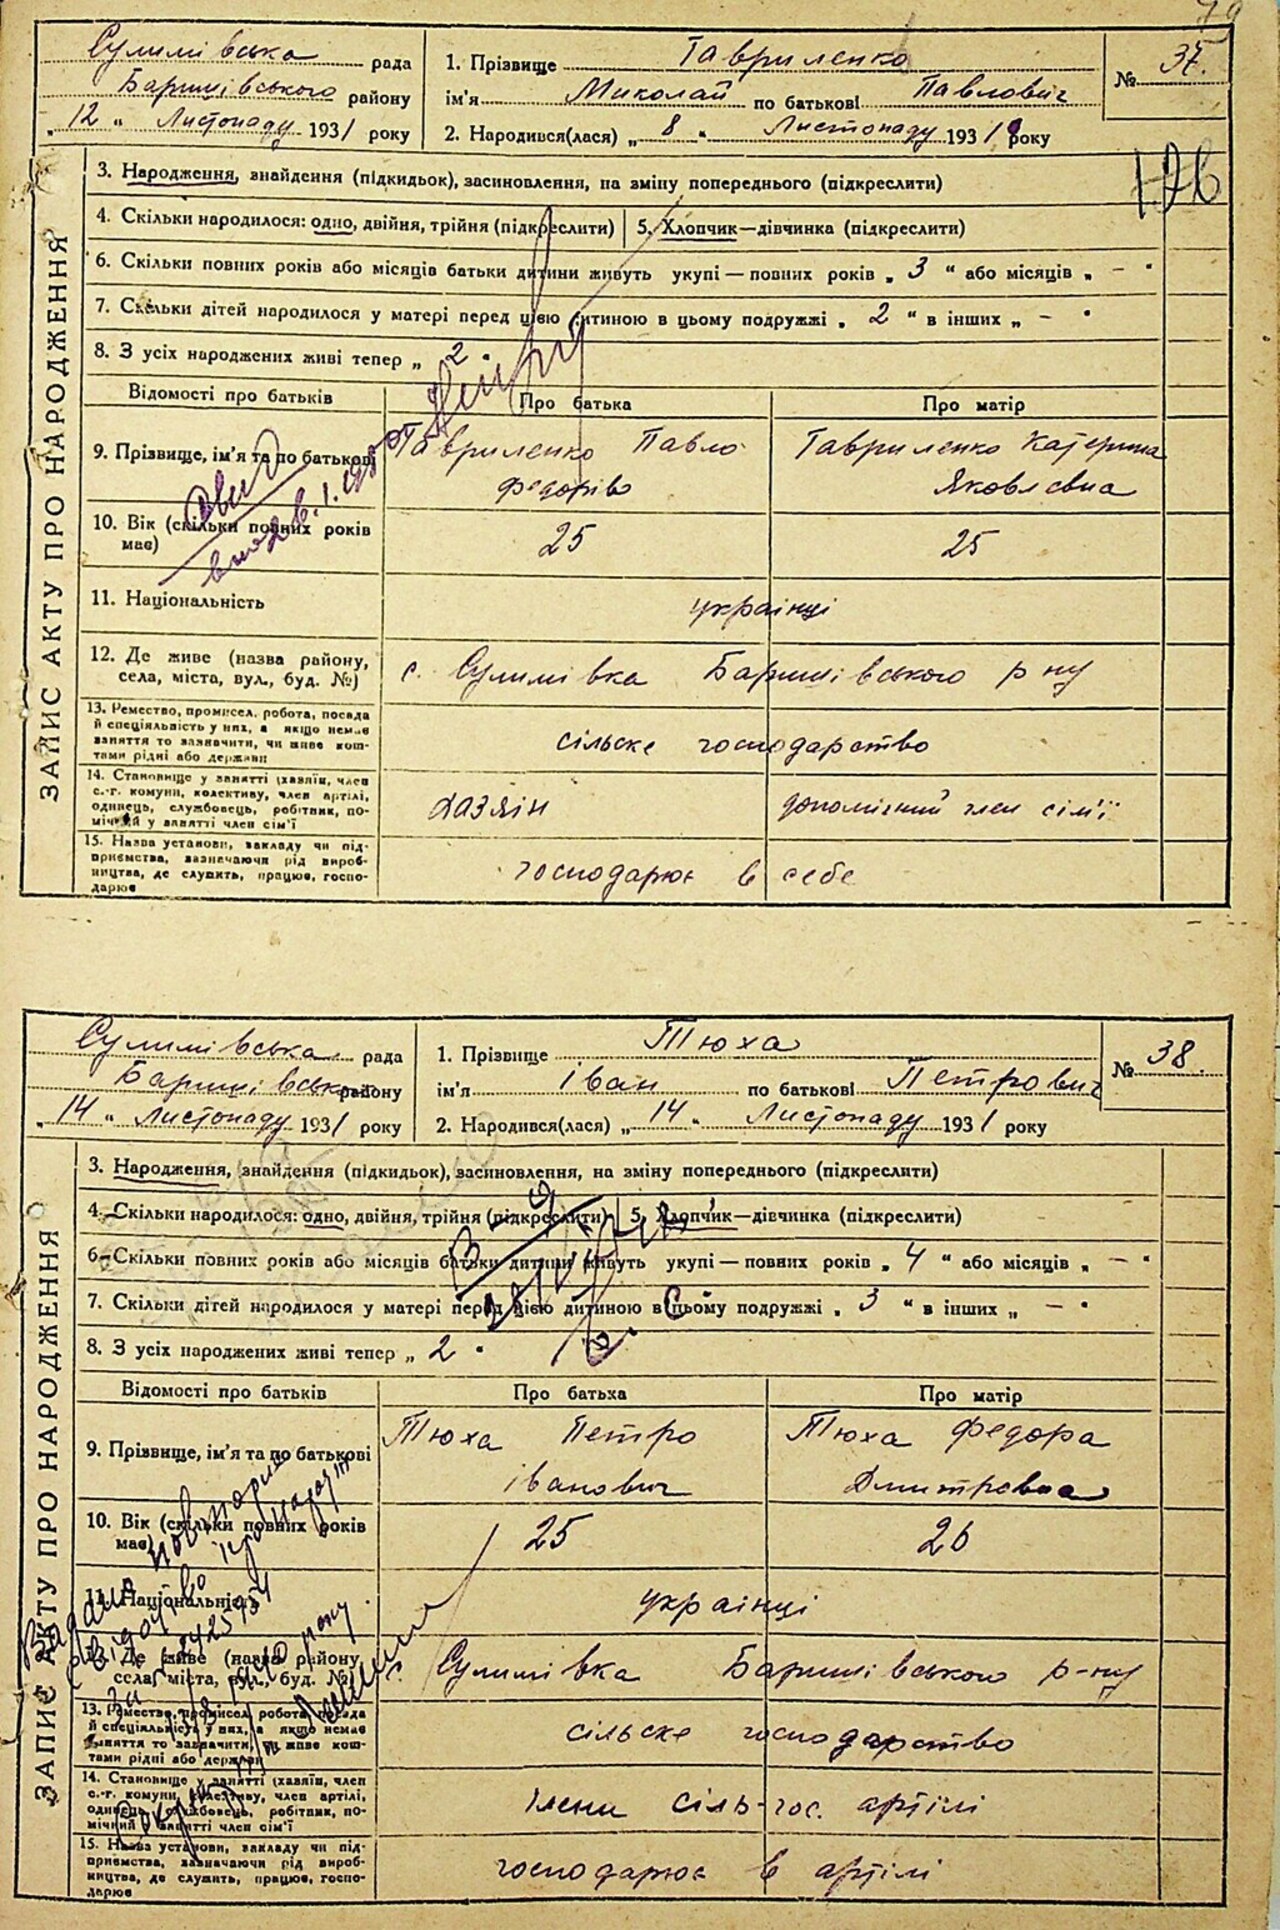 79
Сулимівська рада
Баришівського району
„12“ Листопаду 1931 року
1. Прізвище Гавриленко
ім'я Миколай по батькові Павлович
2. Народився(лася) „8“ Листопаду 1931 року
№ 37.
126
ЗАПИС АКТУ ПРО НАРОДЖЕННЯ
3. Народження, знайдення (підкидьок), засиновлення, на зміну попереднього (підкреслити)
4. Скільки народилося: одно, двійня, трійня (підкреслити) 5. Хлопчик—дівчинка (підкреслити)
6. Скільки повних років або місяців батьки дитини живуть укупі — повних років „3“ або місяців „—“
7. Скільки дітей народилося у матері перед цією дитиною в цьому подружжі „2“ в інших „—“
8. З усіх народжених живі тепер „2“
Відомості про батьків Про батька Про матір
9. Прізвище, ім'я та по батькові Гавриленко Павло Гавриленко Катерина
Федорів Яковлєвна
10. Вік (скільки повних років
має) 25 25
11. Національність українці
12. Де живе (назва району,
села, міста, вул., буд. №) с. Сулимівка Баришівського р ну
13. Ремество, промисел, робота, посада
й спеціальність у них, а якщо немає
заняття то зазначити, чи живе кош-
тами рідні або держави
сільске господарство
14. Становище у занятті (хазяїн, член
с.-г. комуни, колективу, член артілі,
одинець, службовець, робітник, по-
мічний у занятті член сім'ї
хазяін допомічний член сім'ї
15. Назва установи, закладу чи під-
приємства, зазначаючи рід вироб-
ництва, де служить, працює, госпо-
дарює
господарює в себе
Сулимівська рада
Баришівськ району
„14“ Листопаду 1931 року
1. Прізвище Тюха
ім'я Іван по батькові Петрович
2. Народився(лася) „14“ Листопаду 1931 року
№ 38.
ЗАПИС АКТУ ПРО НАРОДЖЕННЯ
3. Народження, знайдення (підкидьок), засиновлення, на зміну попереднього (підкреслити)
4. Скільки народилося: одно, двійня, трійня (підкреслити) 5. Хлопчик—дівчинка (підкреслити)
6. Скільки повних років або місяців батьки дитини живуть укупі — повних років „4“ або місяців „—“
7. Скільки дітей народилося у матері перед цією дитиною в цьому подружжі „3“ в інших „—“
8. З усіх народжених живі тепер „2“
Відомості про батьків Про батька Про матір
9. Прізвище, ім'я та по батькові Тюха Петро Тюха Федора
Іванович Дмитровна
10. Вік (скільки повних років
має) 25 26
11. Національність українці
12. Де живе (назва району,
села, міста, вул., буд. №) с. Сулимівка Баришівського р-ну
13. Ремество, промисел, робота, посада
й спеціальність у них, а якщо немає
заняття то зазначити, чи живе кош-
тами рідні або держави
сільске господарство
14. Становище у занятті (хазяїн, член
с.-г. комуни, колективу, член артілі,
одинець, службовець, робітник, по-
мічний у занятті член сім'ї
члени сіль-гос. артілі
15. Назва установи, закладу чи під-
приємства, зазначаючи рід вироб-
ництва, де служить, працює, госпо-
дарює
господарює в артілі